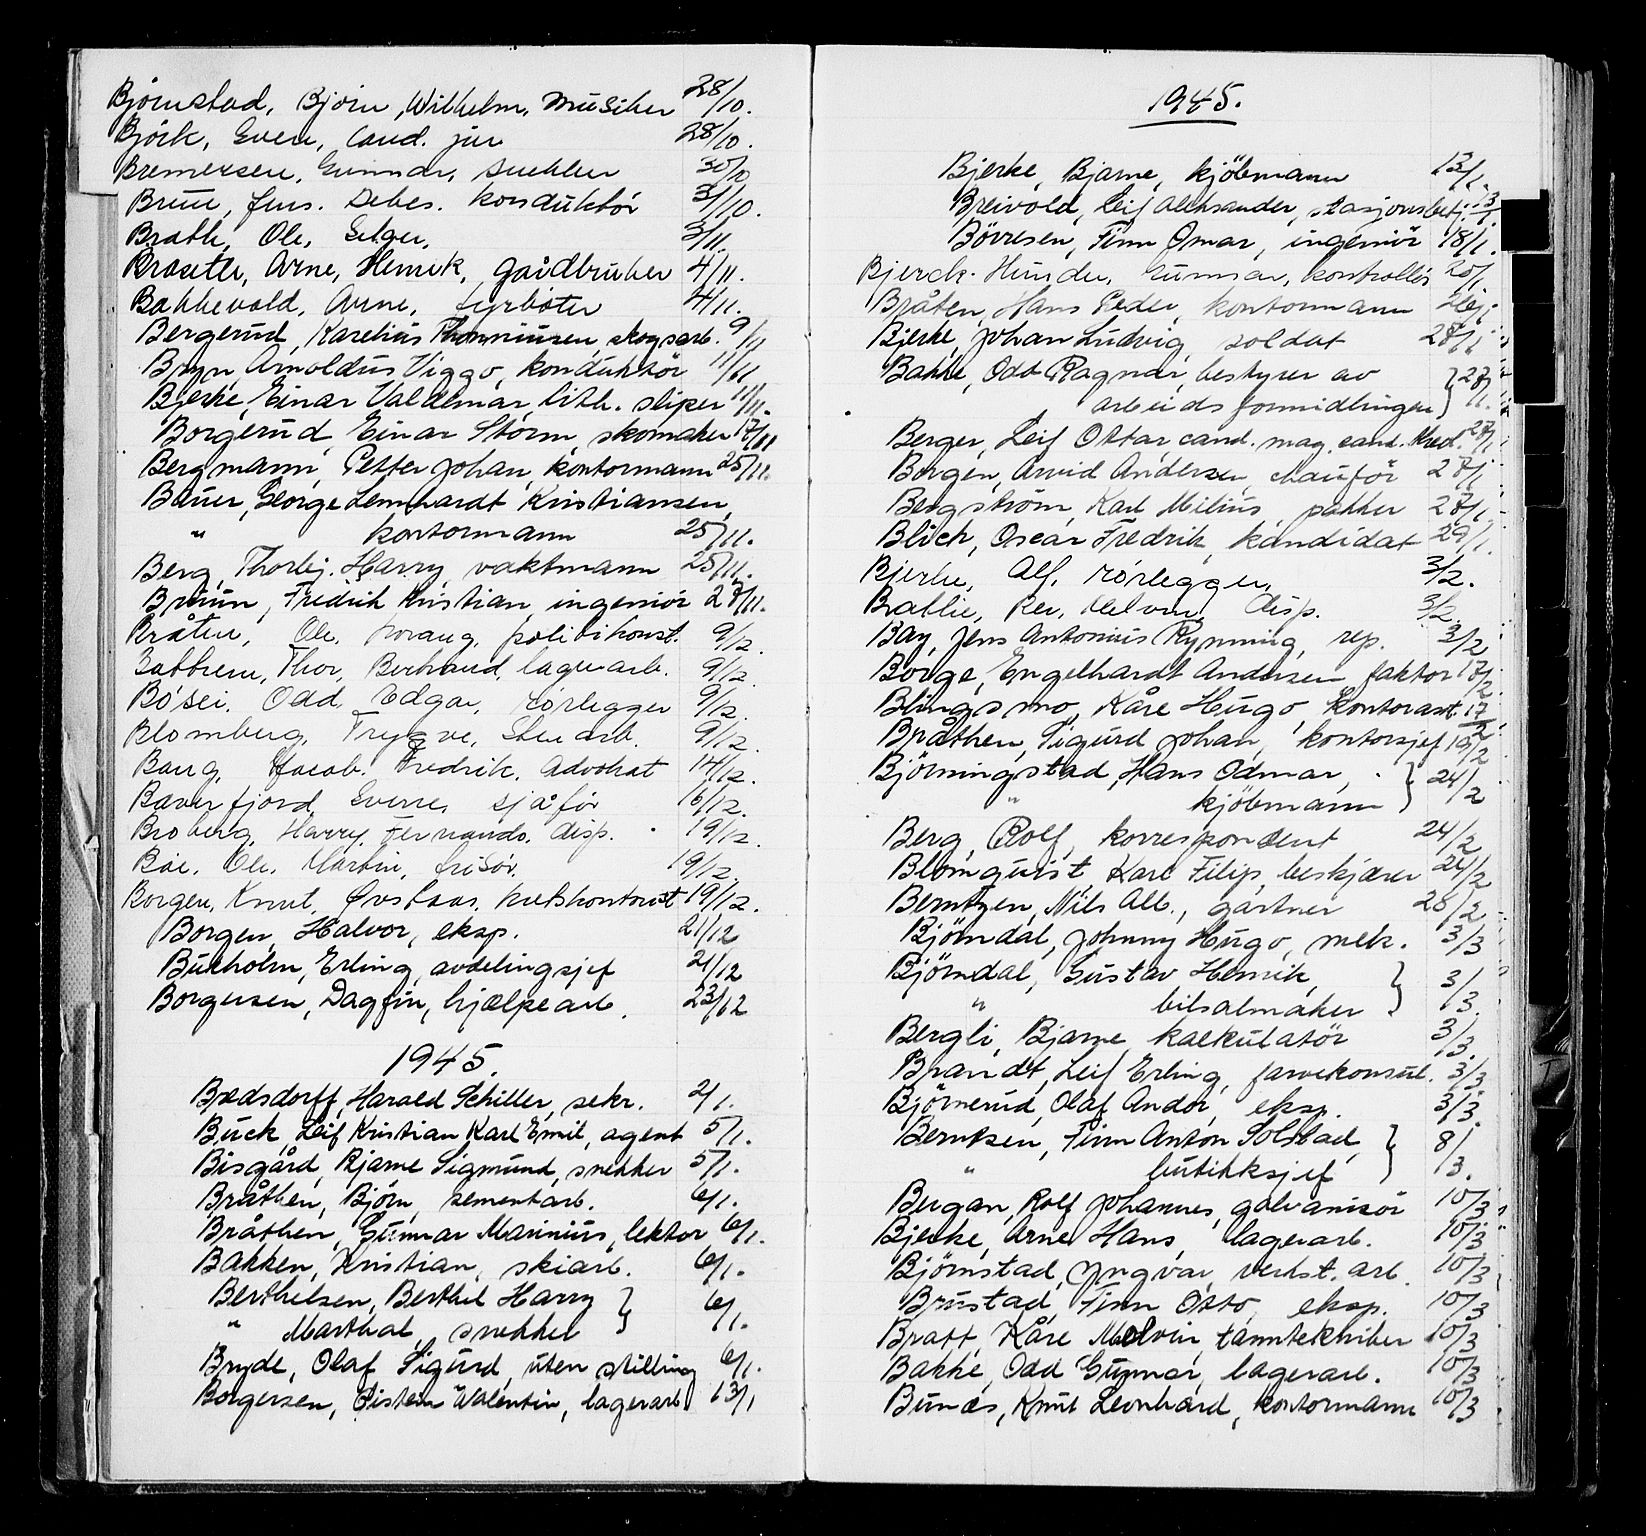 Björnstad, Björn, Wilhelm, Musiker 28/10.
Björk, Sverre, Cand. jur 28/10.
Bremersen, Gunnar, snekker 30/10
Bruu, Jens. Debes. konduktör 31/10.
Brath, Ole, Selger, 3/11.
Braseth, Arne, Henrik, gårdbruker 4/11.
Bakkevold, Arne, fyrböter 4/11.
Bergerud, Karelius Thommiusen, skogsarb. 9/11
Bryn, Arnoldus Viggo, konduktör 11/11
Bjerke, Einar Valdemar, lith. sliper 11/11.
Borgerud, Einar Storm, skomaker 17/11
Bergmann, Petter Johan, kontormann 25/11.
Bauer, George Lennhardt Kristiansen,
" kontormann 25/11.
Berg, Thorleif. Harry, vaktmann 25/11.
Bruun, Fredrik Kristian, ingeniör 27/11.
Bråten, Ole, politikonst. 9/12.
Thor, Bernhard, lagerarb. 9/12.
Bösei, Odd, Edgar, rörlegger 9/12.
Blomberg, Trygve, Stenarb. 9/12.
Bang, Jacob. Fredrik, Advokat 14/12.
Baverfjord, Sverre, sjåför 16/12.
Broberg, Harry, Fernando, disp. 19/12.
Bae, Ole, Martin, frisör. 19/12.
Borgen, Knut, Øvstaas, 19/12.
Borgen, Halvor, eksp. 21/12
Buxholm, Erling, avdelingsjef 21/12
Borgersen, Dagfin, hjælpearb. 23/12
1945.
Brædsdorff, Harald Schiller, sekr. 2/1.
Buck, Leif Kristian Karl Emil, agent 5/1.
Bisgård, Bjarne Sigmund, snekker 5/1.
Bråthen, Björn, sementarb. 6/1.
Bråthen, Gunnar Marinius, lektor 6/1.
Bakken, Kristian, skiarb. 6/1.
Berthelsen, Berthel Harry } 6/1.
" Marthal, snekker
Bryde, Olaf Sigurd, uten stilling 6/1.
Borgersen, Öistein Valentin, lagerarb 13/1
1945.
Bjerke, Bjarne, kjöbmann 13/1.
Breivold, Leif Aleksander, stasjonsbetj. 13/1.
Börresen, Finn Omar, ingeniör 18/1.
Bjerck-Hunde, Gunnar, kontrollör 20/1.
Bråten, Hans Peder, kontormann 26/1.
Bjerke, Johan Ludvig, soldat 28/1
Bakke, Odd Ragnar, bestyrer av } 28/1.
arbeidsformidlingen
Berger, Leif Ottar, cand. mag, cand. theol. 28/1
Borgen, Arvid Andersen, chaufför 28/1
Bergström, Karl Milius, pakker 28/1
Blich, Oscar Fredrik, kandidat 29/1.
Bjerke, Alf, rörlegger, 3/2.
Brattlie, Per, disp. 3/2.
Bay, Jens Antonius Rynning, rep. 3/2
Borge, Engelhardt Andersen, faktor 17/2
Blingsmo, Kåre Hugo, kontorass. 17/2
Bråthen, Sigurd Johan, kontorsjef 19/2
Björningstad, Hans Odmar, } 24/2
" kjöbmann
Berg, Rolf, korrespondent 24/2
Blomquist, Karl Filip, beskjærer 24/2
Berntzen, Nils Alb., gartner 28/2
Björndal, Johnny Hugo, mek. 3/3
Björndal, Gustav Henrik, } 3/3.
" bilsalmaker
Bergli, Bjarne, kalkulatör 3/3.
Brandt, Leif Erling, farvekonsul. 3/3
Björnerud, Olaf Andor, eksp. 3/3.
Berntsen, Finn Anton Solstad, } 8/3.
" butikksjef
Bergan, Rolf Johannes, galvanisör 10/3
Bjerke, Arne Hans, lagerarb. 10/3
Björnstad, Yngvar, verkst. arb. 10/3
Brustad, Finn Otto, eksp. 10/3
Bratt, Kåre Melvin, tanntekniker 10/3
Bakke, Odd Gunnar, lagerarb. 10/3
Bunæs, Knut Leonhard, kontormann 10/3